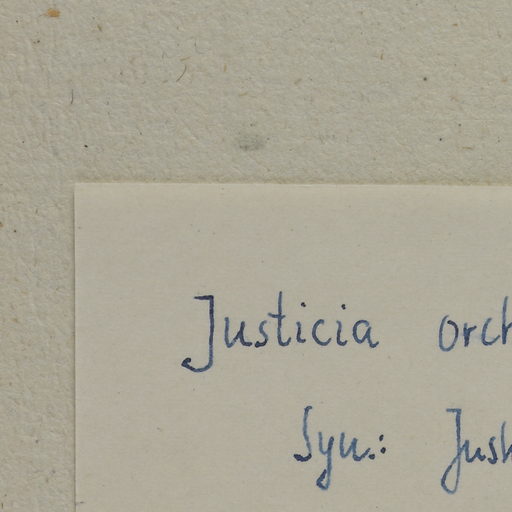 Justicia orch
Syn.: Just